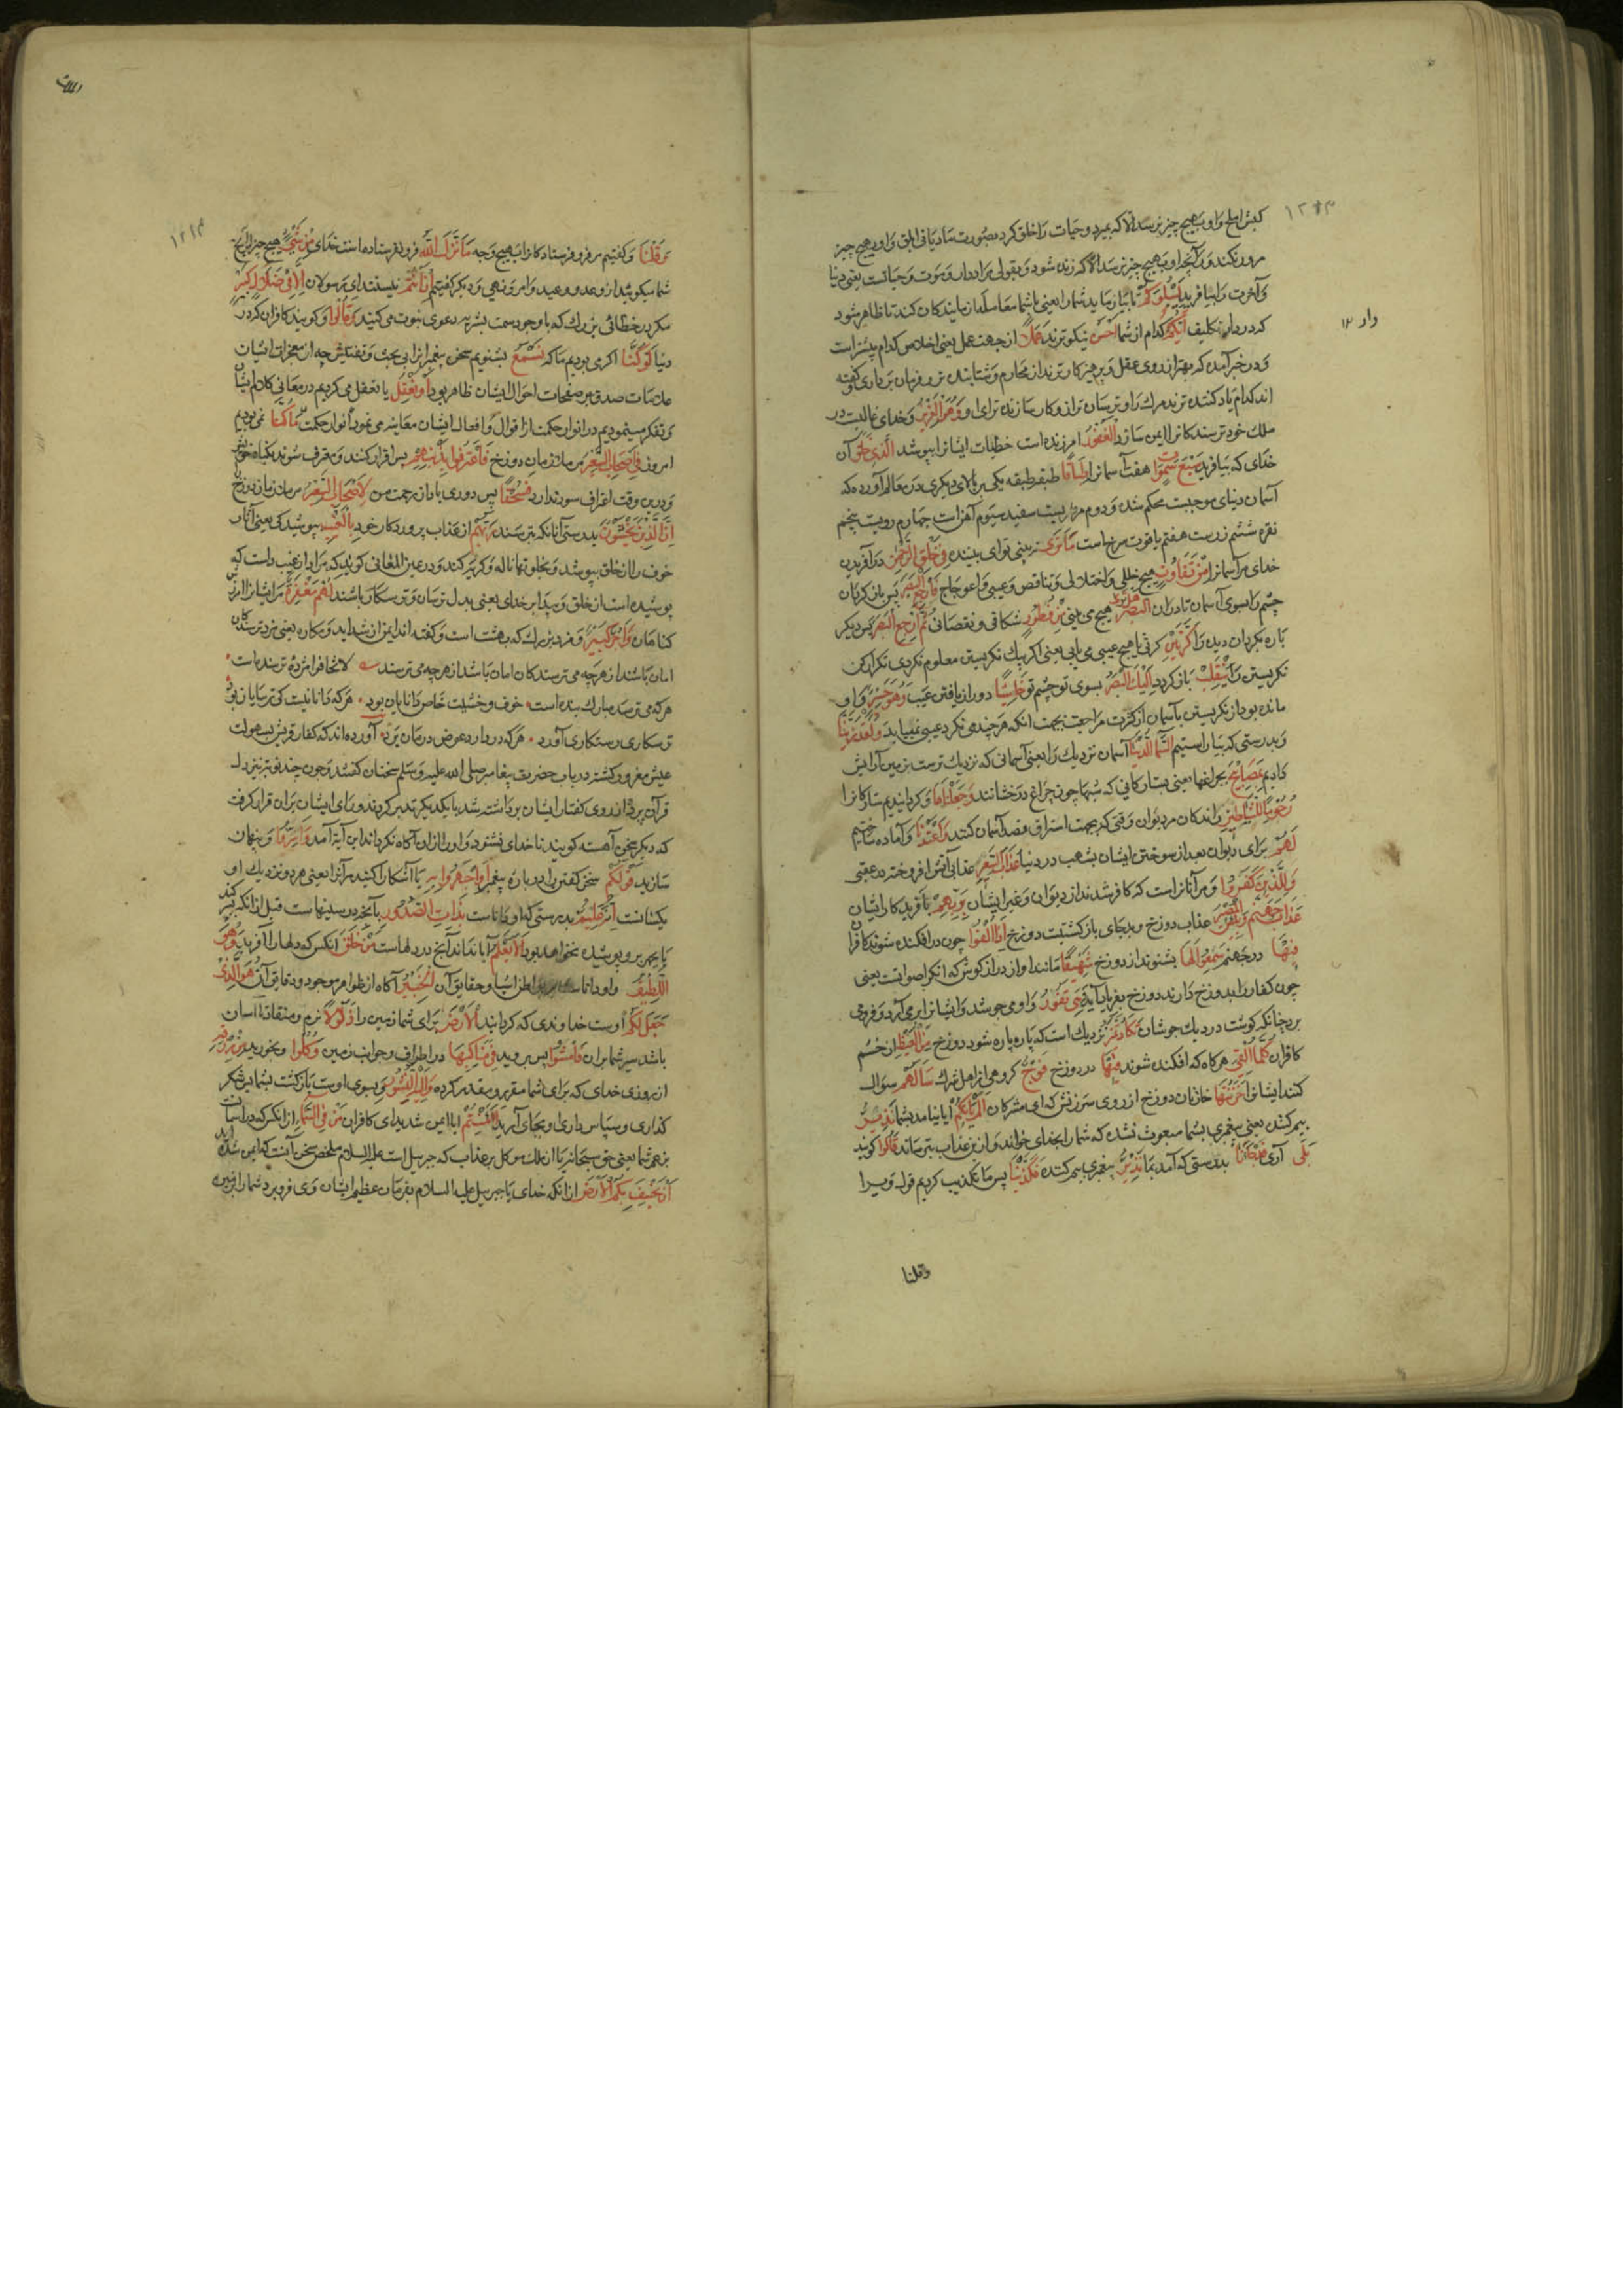 ۱۲۱۳
کبش املح و او بهیچ چیز نرسد الا که بمیرد و حیات را خلق کرد بصورت مادیانی ابلق و او بهیچ چیز
مرور نکند و رایحه او بهیچ چیز نرسد الا که زنده شود و بقولی مراد از موت و حیات یعنی دنیا
و آخرت را بیافرید لِیَبْلُوَکُمْ تا بیازماید شما را یعنی با شما معامله آزمایندکان کند تا ظاهر شود
که در دار تکلیف أَیُّکُمْ کدام از شما أَحْسَنُ نیکوترند عَمَلًا از جهت عمل یعنی اخلاص کدام بیشتر است
دار ۱۲
و در خبر آمده که بهتر از روی عقل و پرهیزکارترند از محارم و شتابنده تر و فرمان برداری و کفته
اند کدام یاد کننده ترند مرک را و ترسان تر از و کار سازنده تر برای او وَهُوَ الْعَزِیزُ و خدای غالبست در
ملک خود ترسندکانرا ایمن سازد الْغَفُورُ امرزنده است خطیات ایشانرا بپوشد الَّذِی خَلَقَ آن
خدای که بیافرید سَبْعَ سَمٰوَاتٍ هفت آسمانرا طِبَاقًا طبقه طبقه یکی بر بالای دیکری در معالم آورده که
آسمان دنیا موجیست محکم شده و دوم مرمریست سفید سیوم آهن است چهارم رویست پنجم
نقره ششم زرست هفتم یاقوت سرخ است مَا تَرَی نه بینی تو ای بیننده فِی خَلْقِ الرَّحْمٰنِ در آفریدن
خدای مر آسمانرا مِنْ تَفَاوُتٍ هیچ خللی و اختلالی و تناقض و عیبی و اعوجاج فَارْجِعِ الْبَصَرَ پس باز کردان
چشم را بسوی آسمان تا در ان الْبَصَرَ هَلْ تَرَی هیچ می بینی مِنْ فُطُورٍ شکافی و نقصانی ثُمَّ ارْجِعِ الْبَصَرَ پس دیکر
باره بکردان دیده را کَرَّتَیْنِ کرتی تا هیچ عیبی می یابی یعنی اکر بیک نکریستن معلوم نکردی تکرار کن
نکریستن را یَنْقَلِبْ باز کردد إِلَیْکَ الْبَصَرُ بسوی تو چشم تو خَاسِئًا دور از یافتن عیب وَهُوَ حَسِیرٌ و او
مانده بود از نکریستن بآسمان از کثرت مراجعت بجهت انکه هر چند می نکرد عیبی نمییابد وَلَقَدْ زَیَّنَّا
و بدرستی که بیاراستیم السَّمَاءَ الدُّنْیَا آسمان نزدیک را یعنی آسمانی که نزدیک ترست بزمین آرایش
دادیم بِمَصَابِیحَ بچراغها یعنی بستارکانی که شبها چون چراغ درخشانند وَجَعَلْنَاهَا و کردانیدیم ستارکانرا
رُجُومًا لِلشَّیَاطِینِ رانندکان مر دیوان وقتی که بجهت استراق قصد آسمان کنند وَأَعْتَدْنَا و آماده ساختیم
لَهُمْ برای دیوان بعد از سوختن ایشان بشهب در دنیا عَذَابَ السَّعِیرِ عذاب آتش افروخته در عقبی
وَلِلَّذِینَ کَفَرُوا و مر آنانراست که کافر شدند از دیوان و غیر ایشان بِرَبِّهِمْ بآفریدکار ایشان
عَذَابُ جَهَنَّمَ وَبِئْسَ الْمَصِیرُ عذاب دوزخ و بدجای بازکشتیست دوزخ إِذَا أُلْقُوا چون درافکنده شوند کافران
فِیهَا در جهنم سَمِعُوا لَهَا بشنوند از دوزخ شَهِیقًا مانند آواز درازکوش که انکر اصواتست یعنی
چون کفار را بدوزخ در آرند دوزخ بفریاد آید وَهِیَ تَفُورُ و او می جوشد و ایشانرا بر می آرد و فرو می
برد چنانکه کوشت در دیک جوشان تَکَادُ تَمَیَّزُ نزدیک است که پاره پاره شود دوزخ مِنَ الْغَیْظِ از خشم
کافران کُلَّمَا أُلْقِیَ هرکاه که افکنده شوند فِیهَا در دوزخ فَوْجٌ کروهی از اهل شرک سَأَلَهُمْ سؤال
کنند ایشانرا خَزَنَتُهَا خازنان دوزخ از روی سرزنش که ای مشرکان أَلَمْ یَأْتِکُمْ آیا نیامد بشما نَذِیرٌ
بیم کننده یعنی پیغمبری بشما مبعوث نشده که شما را بخدای خواند و از عذاب بترساند قَالُوا کویند
بَلَی آری قَدْ جَاءَنَا بدرستی که آمد بما نَذِیرٌ پیغمبری بیم کننده فَکَذَّبْنَا پس ما تکذیب کردیم قول ویرا
وقلنا
۱۲۱۴
وَقُلْنَا و کفتیم مر فرو فرستادکانرا بهیچ وجه مَا نَزَّلَ اللَّهُ فرو نفرستاده است خدای مِنْ شَیْءٍ هیچ چیز از آنچه
شما میکوئید از وعد و وعید و امر و نهی و دیکر کفتیم إِنْ أَنْتُمْ نیستید ای رسولان إِلَّا فِی ضَلَالٍ کَبِیرٍ
مکر در خطائی بزرک که با وجود سمت بشریه دعوی نبوت می کنید وَقَالُوا و کویند کافران که در
دنیا لَوْ کُنَّا اکر می بودیم ما که نَسْمَعُ بشنویم سخن پیغمبرانرا بی بحث و تفتیش چه از معجزات ایشان
علامات صدق بر صفحات احوال ایشان ظاهر بود أَوْ نَعْقِلُ یا تعقل می کردیم در معانی کلام ایشان
و تفکر مینمودیم در انوار حکمت از اقوال و افعال ایشان معاینه می نمود انوار حکمت مَا کُنَّا نمی بودیم
امروز فِی أَصْحَابِ السَّعِیرِ در ملازمان دوزخ فَاعْتَرَفُوا بِذَنْبِهِمْ پس اقرار کنند و معترف شوند بکناه خود
و درین وقت اعتراف سود ندارد فَسُحْقًا پس دوری باد از رحمت من لِأَصْحَابِ السَّعِیرِ مر ملازمان دوزخ
إِنَّ الَّذِینَ یَخْشَوْنَ بدرستی آنانکه بترسند رَبَّهُمْ از عذاب پروردکار خود بِالْغَیْبِ بپوشیدکی یعنی آثار
خوف را از خلق بپوشند و بخلوتها ناله و کریه کنند و در عین المعانی کوید که مراد از غیب دلست که
پوشیده است از خلق و پیدا بر خدای یعنی بدل ترسان و ترسکار باشند لَهُمْ مَغْفِرَةٌ مر ایشانراست آمرزش
کناهان وَأَجْرٌ کَبِیرٌ و مزد بزرک که بهشت است و کفته اند ایمن از شداید و مکاره یعنی مزد ترسندکان
امان باشد از هرچه می ترسند کان امان باشد از هرچه می ترسند لا تخافوا مژده ترسنده است
هرکه می ترسد مبارک بنده است خوف و خشیت خاص دانایان بود هرکه دانا نیست کی ترسایان بود
ترسکاری رستکاری آورد هرکه درد آرد عوض درمان برد آورده اند که کفار قریش بسهولت
عیش مغرور کشته در باب حضرت پیغامبر صلی الله علیه و سلم سخنان کفتند و چون چند نوبت بنزول
قرآن پرده از روی کفتار ایشان برداشته شد با یکدیکر تدبیر کردند و رای ایشان بران قرار کرفت
که دیکر سخن آهسته کویند تا خدای نشنود و او را از ان آکاه نکرداند این آیة آمد وَأَسِرُّوا و پنهان
سازید قَوْلَکُمْ سخن کفتن را در باره پیغمبر أَوِ اجْهَرُوا بِهِ یا آشکارا کنید مر آنرا یعنی هر دو نزدیک او
یکسانست إِنَّهُ عَلِیمٌ بدرستی که او داناست بِذَاتِ الصُّدُورِ بآنچه در سینهاست قبل از انکه بسر کنند
یا بجهر برو پوشیده نخواهد بود أَلَا یَعْلَمُ آیا نداند آنچ در دلهاست مَنْ خَلَقَ آنکس که دلها را آفرید وَهُوَ
اللَّطِیفُ و او داناست ببواطن اشیا و حقایق آن الْخَبِیرُ آکاه از ظواهر موجود و دقایق آن هُوَ الَّذِی
جَعَلَ لَکُمُ اوست خداوندی که کردانید الْأَرْضَ برای شما زمین را ذَلُولًا نرم و منقاد تا آسان
باشد سیر شما بر ان فَامْشُوا پس بروید فِی مَنَاکِبِهَا در اطراف و جوانب زمین وَکُلُوا و بخورید مِنْ رِزْقِهِ
از روزی خدای که برای شما مقرر و مقدر کرده وَإِلَیْهِ النُّشُورُ و بسوی اوست بازکشت شما پس شکر
کذاری و سپاس داری او بجای آرید أَأَمِنْتُمْ ایا ایمن شدید ای کافران مَنْ فِی السَّمَاءِ از انکس که در آسمانست
بزعم شما یعنی حق سبحانه یا از ملک موکل بر عذاب که جبرییل است علیه السلام ملخص سخن آنست که ایمن شده اید
أَنْ یَخْسِفَ بِکُمُ الْأَرْضَ از انکه خدای یا جبرییل علیه السلام بفرمان عظیم الشان وی فرو برد شما را بزمین